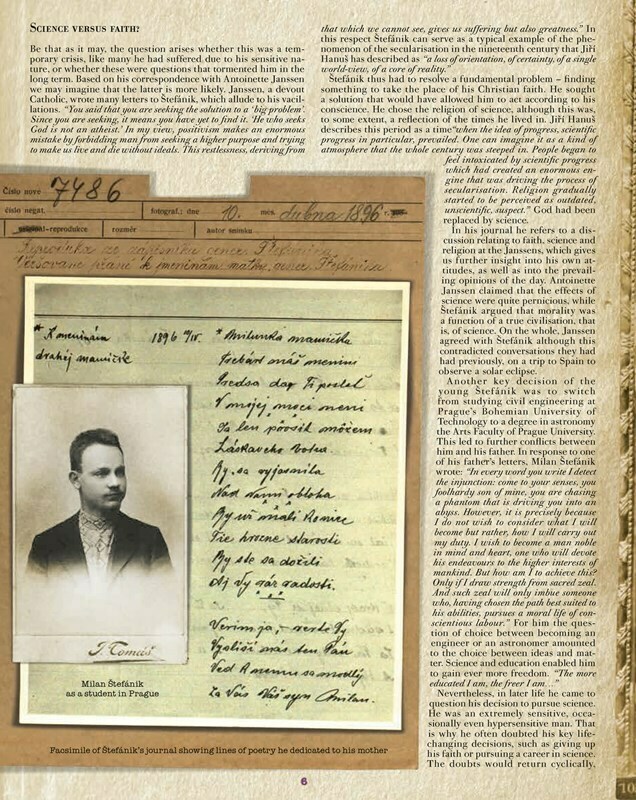 SCIENCE VERSUS FAITH?
Be that as it may, the question arises whether this was a tem-
porary crisis, like many he had suffered due to his sensitive na-
ture, or whether these were questions that tormented him in the
long term. Based on his correspondence with Antoinette Janssen
we may imagine that the latter is more likely. Janssen, a devout
Catholic, wrote many letters to Štefánik, which allude to his vacil-
lations. "You said that you are seeking the solution to a 'big problem'.
Since you are seeking, it means you have yet to find it. 'He who seeks
God is not an atheist.' In my view, positivism makes an enormous
mistake by forbidding man from seeking a higher purpose and trying
to make us live and die without ideals. This restlessness, deriving from
that which we cannot see, gives us suffering but also greatness." In
this respect Štefánik can serve as a typical example of the phe-
nomenon of the secularisation in the nineteenth century that Jiří
Hanuš has described as "a loss of orientation, of certainty, of a single
world-view, of a core of reality."
Štefánik thus had to resolve a fundamental problem – finding
something to take the place of his Christian faith. He sought
a solution that would have allowed him to act according to his
conscience. He chose the religion of science, although this was,
to some extent, a reflection of the times he lived in. Jiří Hanuš
describes this period as a time "when the idea of progress, scientific
progress in particular, prevailed. One can imagine it as a kind of
atmosphere that the whole century was steeped in. People began to
feel intoxicated by scientific progress
which had created an enormous en-
gine that was driving the process of
secularisation. Religion gradually
started to be perceived as outdated,
unscientific, suspect." God had been
replaced by science.
In his journal he refers to a dis-
cussion relating to faith, science and
religion at the Janssens, which gives
us further insight into his own at-
titudes, as well as into the prevail-
ing opinions of the day. Antoinette
Janssen claimed that the effects of
science were quite pernicious, while
Štefánik argued that morality was
a function of a true civilisation, that
is, of science. On the whole, Janssen
agreed with Štefánik although this
contradicted conversations they had
had previously, on a trip to Spain to
observe a solar eclipse.
Another key decision of the
young Štefánik was to switch
from studying civil engineering at
Prague's Bohemian University of
Technology to a degree in astronomy
the Arts Faculty of Prague University.
This led to further conflicts between
him and his father. In response to one
of his father's letters, Milan Štefánik
wrote: "In every word you write I detect
the injunction: come to your senses, you
foolhardy son of mine, you are chasing
a phantom that is driving you into an
abyss. However, it is precisely because
I do not wish to consider what I will
become but rather, how I will carry out
my duty. I wish to become a man noble
in mind and heart, one who will devote
his endeavours to the higher interests of
mankind. But how am I to achieve this?
Only if I draw strength from sacred zeal.
And such zeal will only imbue someone
who, having chosen the path best suited to
his abilities, pursues a moral life of con-
scientious labour." For him the ques-
tion of choice between becoming an
engineer or an astronomer amounted
to the choice between ideas and mat-
ter. Science and education enabled him
to gain ever more freedom. "The more
educated I am, the freer I am…"
Nevertheless, in later life he came to
question his decision to pursue science.
He was an extremely sensitive, occa-
sionally even hypersensitive man. That
is why he often doubted his key life-
changing decisions, such as giving up
his faith or pursuing a career in science.
The doubts would return cyclically,
Číslo nové 7486
číslo negat. fotograf.: dne 10. měs. dubna 1896 r.
-reprodukce rozměr autor snímku
* K meninám 1896
drahej mamičke
* Milunká mamička
V mojej moci neni
Láskaveho Boha
By sa vyjasnila
By už mali konice
Tie hrozne starosti
By ste sa dožili
Aj Vy radosti.
Za Vás Váš syn Milan.
J. Tomáš
Milan Štefánik
as a student in Prague
Facsimile of Štefánik's journal showing lines of poetry he dedicated to his mother
6
10